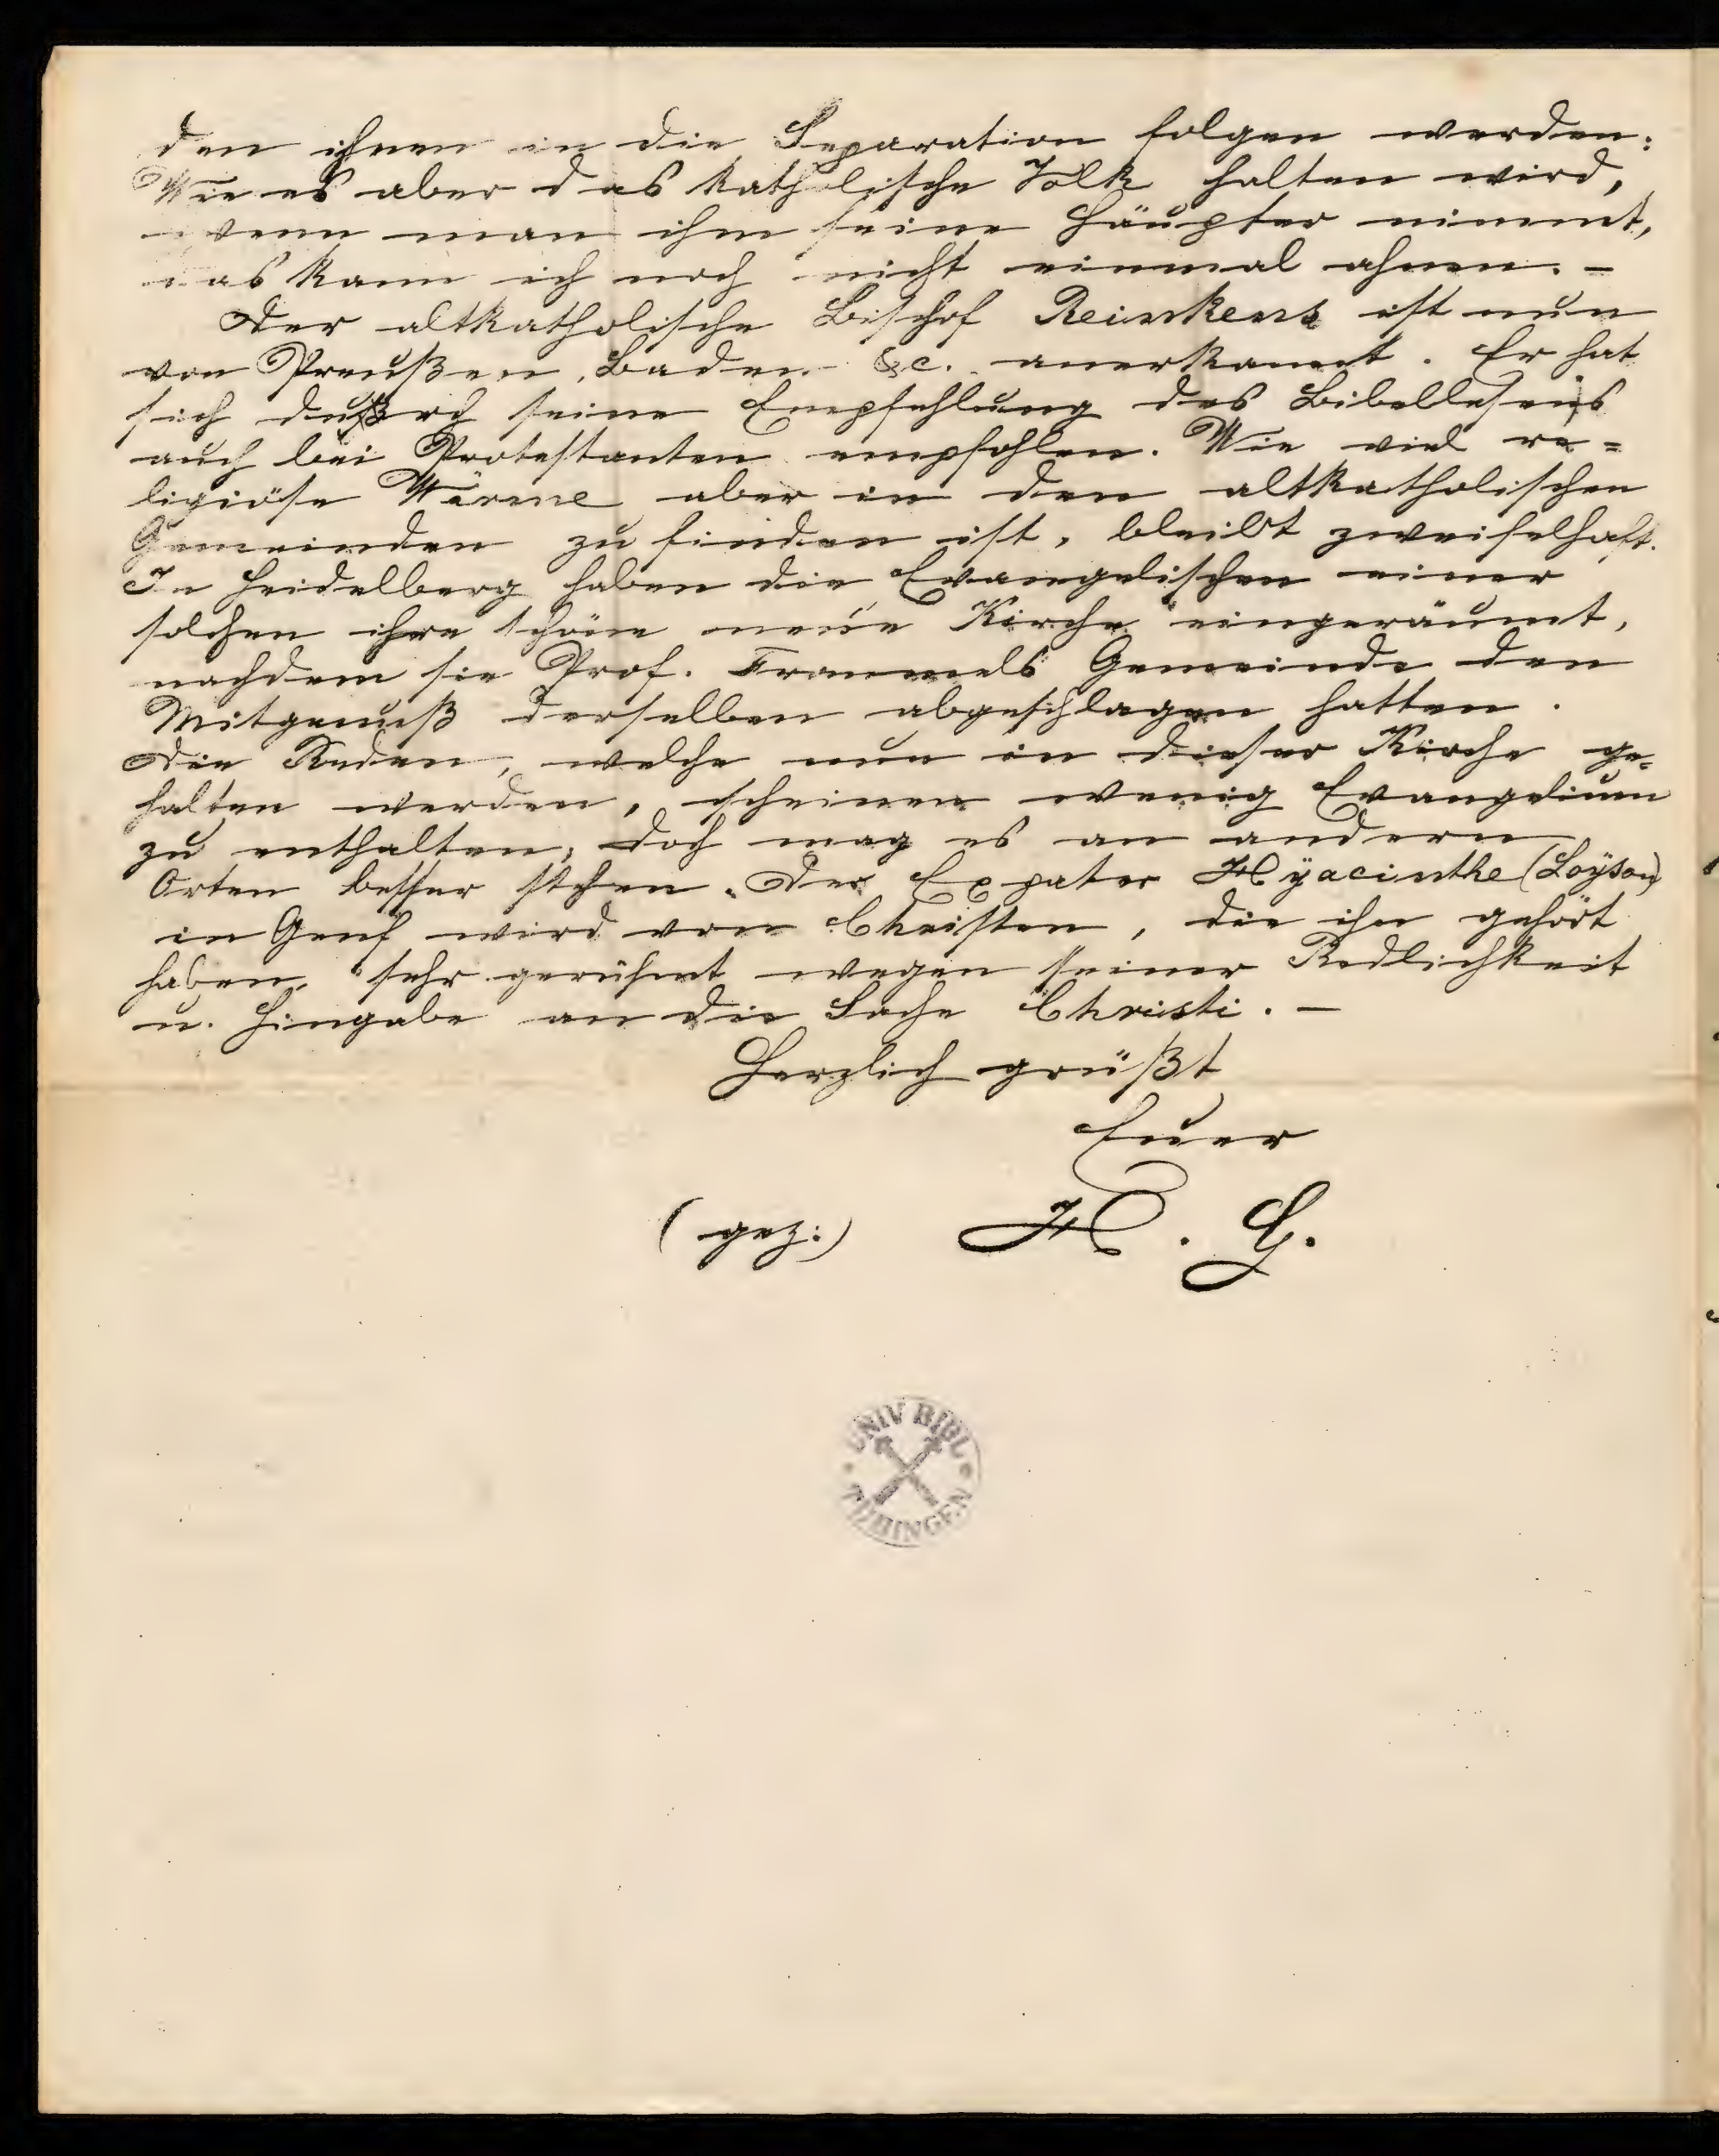 den ihnen in die Separation folgen werden:
Wie es aber das katholische Volk halten wird,
wenn man ihm seine Häupter nimmt,
das kann ich noch nicht einmal ahnen. –
Der altkatholische Bischof Reinkens ist nun
von Preußen, Baden &c. anerkannt. Er hat
sich durch seine Empfehlung des Bibellesens
auch bei Protestanten empfohlen. Wie viel re=
ligiöse Wärme aber in den altkatholischen
Gemeinden zu finden ist, bleibt zweifelhaft.
In Heidelberg haben die Evangelischen einer
solchen ihre schöne neue Kirche eingeräumt,
nachdem sie Prof. Frommels Gemeinde den
Mitgenuß derselben abgeschlagen hatten.
Die Reden, welche nun in dieser Kirche ge=
halten werden, scheinen wenig Evangelium
zu enthalten; doch mag es an andern
Orten besser stehen. Der Expater Hyacinthe (Loyson)
in Genf wird von Christen, die ihn gehört
haben, sehr gerühmt wegen seiner Redlichkeit
u. Hingabe an die Sache Christi. –
Herzlich grüßt
Euer
(gez:) H. G.
UNIV BIBL
TÜBINGEN